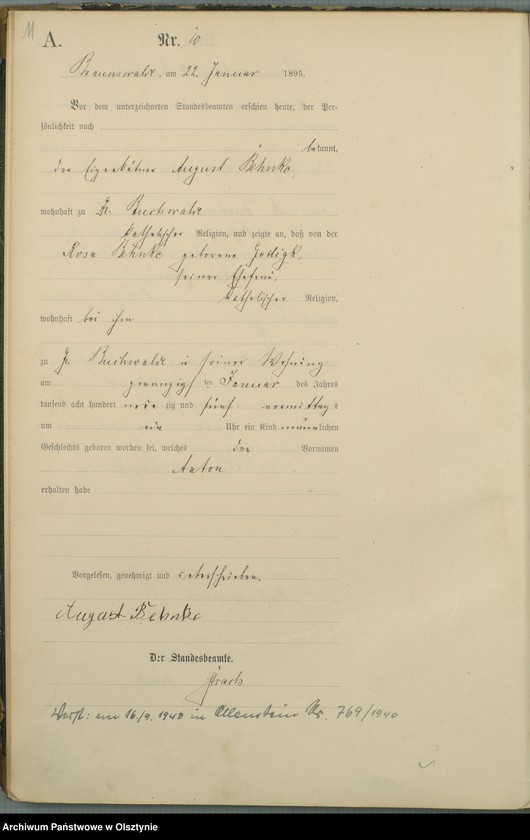 11
A.
Nr. 10
Braunswalde, am 22. Januar 1895.
Vor dem unterzeichneten Standesbeamten erschien heute, der Per-
sönlichkeit nach
bekannt,
der Eigenkätner August Behnke,
wohnhaft zu Gr. Buchwalde
katholischer Religion, und zeigte an, daß von der
Rosa Behnke geborene
seiner Ehefrau,
katholischer Religion,
wohnhaft bei ihm
zu Gr. Buchwalde in seiner Wohnung
am zwanzigsten Januar des Jahres
tausend acht hundert neunzig und fünf vormittags
um ein Uhr ein Kind männlichen
Geschlechts geboren worden sei, welches den Vornamen
Anton
erhalten habe
Vorgelesen, genehmigt und unterschrieben.
August Behnke
Der Standesbeamte.
Verst: am 16./9. 1940 in Allenstein Nr. 769/1940
Archiwum Państwowe w Olsztynie